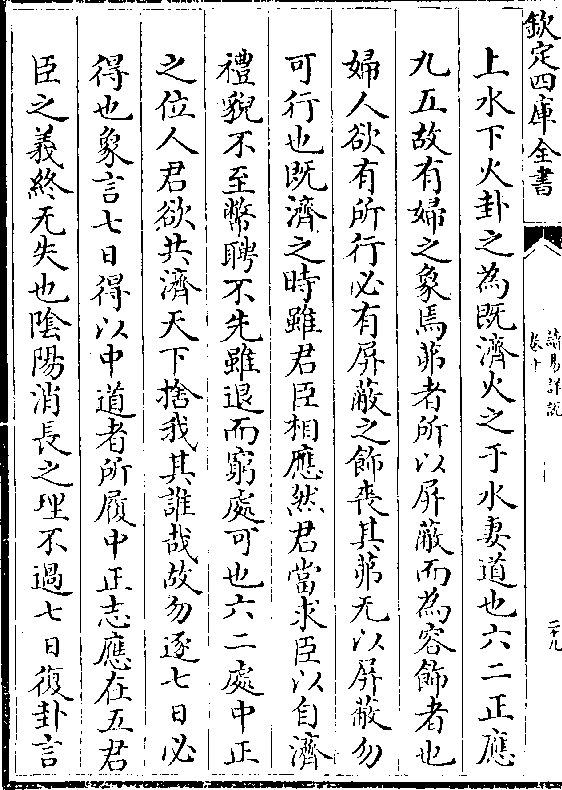 欽定四庫全書
讀易詳說
卷十
二十九
上水下火卦之為既濟火之于水妻道也六二正應
九五故有婦之象焉茀者所以屏蔽而為容飾者也
婦人欲有所行必有屏蔽之飾喪其茀无以屏蔽勿
可行也既濟之時雖君臣相應然君當求臣以自濟
禮貌不至幣聘不先雖退而窮處可也六二處中正
之位人君欲共濟天下捨我其誰哉故勿逐七日必
得也象言七日得以中道者所履中正志應在五君
臣之義終无失也陰陽消長之理不過七日復卦言